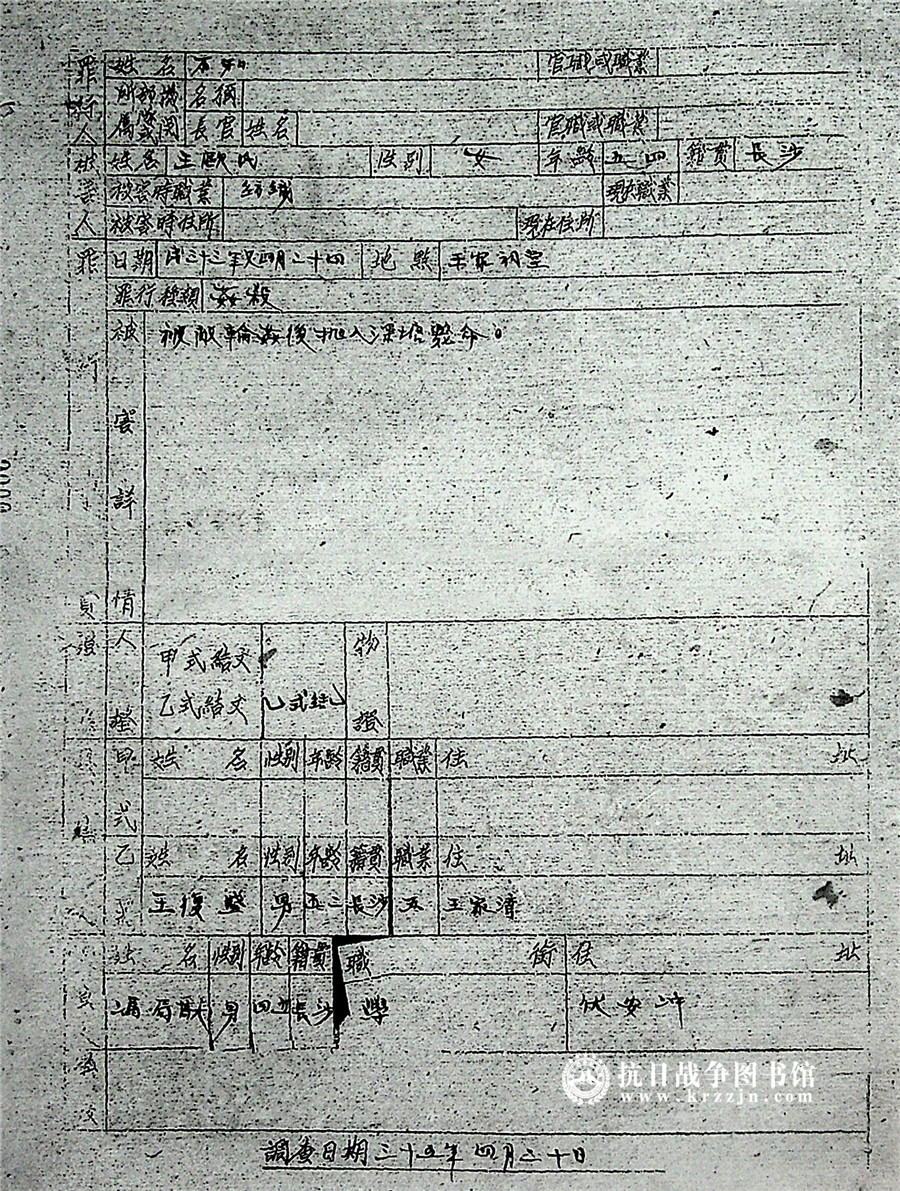 罪行人 姓名 不知 官職或職業
所屬部隊或機關 名稱
長官姓名 官職或職業
被害人 姓名 王歐氏 性別 女 年齡 五四 籍貫 長沙
被害時職業 紡績 現在職業
被害時住所 現在住所
罪行 日期 民三十三年 四月二十四 地點 王家祠堂
罪行種類 姦殺
被害詳情 被敵輪姦後拋入深塘斃命。
人證 甲式結文 物證
乙式結文 乙式結
甲式 姓名 性別 年齡 籍貫 職業 住址
乙式 姓名 性別 年齡 籍貫 職業 住址
王俊 男 五二 長沙 王家
姓名 性別 年齡 籍貫 職銜 住址
馮 男 長沙 學 伏安冲
抗日战争图书馆
www.krzzjn.com
調查日期 三十五年四月二十日